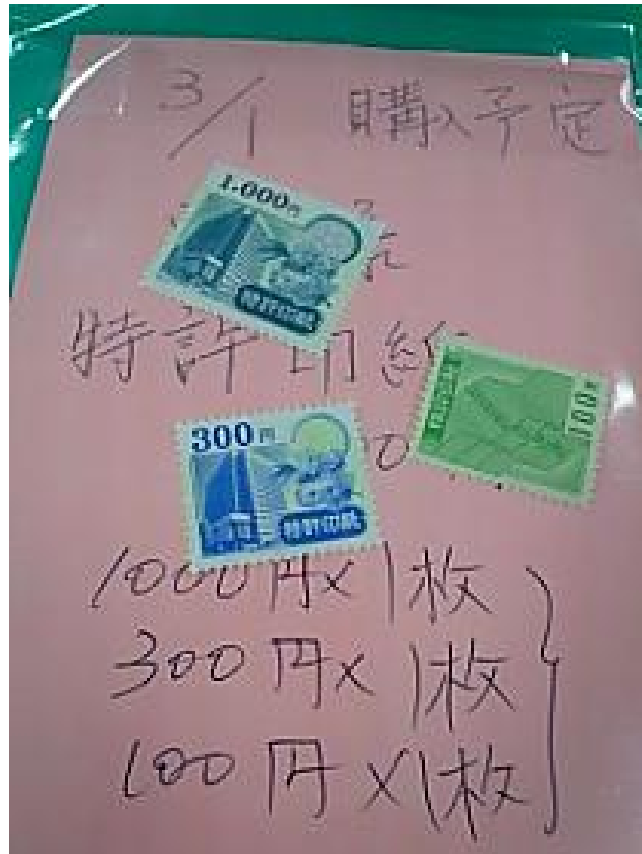 3/1 購入予定
1,000円
特許印紙
特許印紙
100円
300円
特許印紙
1000円×1枚
300円×1枚
100円×1枚